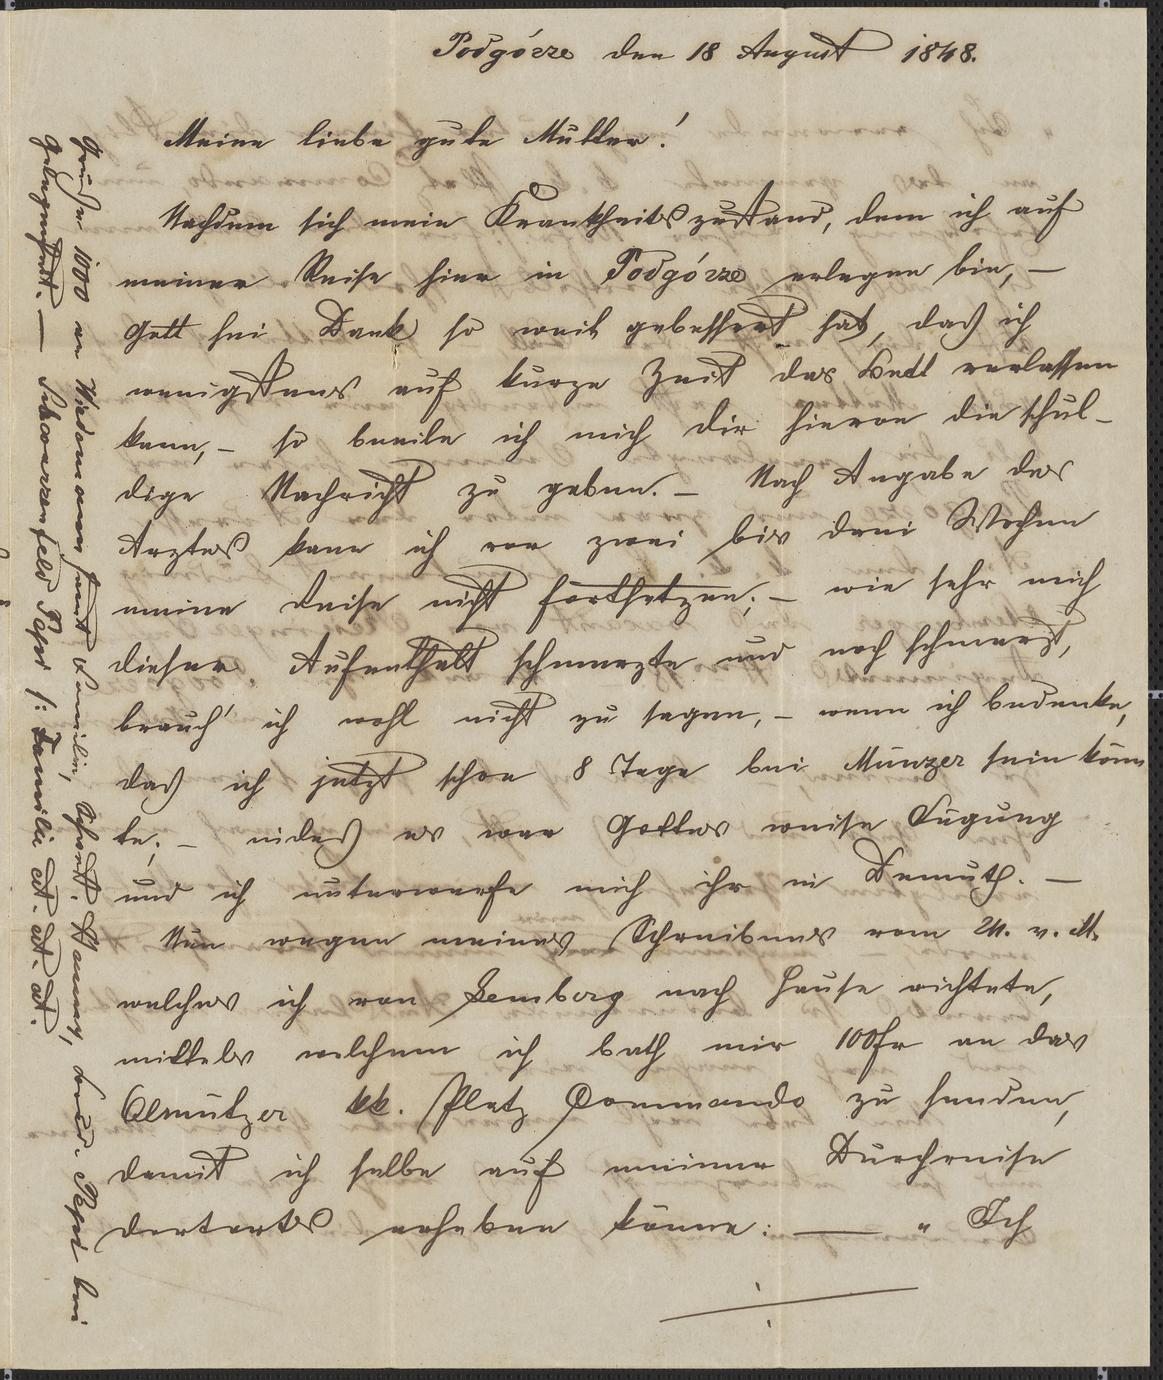 Podgórze den 18 August 1848.
Meine liebe gute Mutter!
Nachdem sich mein Krankheitszustand, dem ich auf
meiner Reise hier in Podgórze erlegen bin, –
Gott sei Dank so weit gebessert hat, daß ich
wenigstens auf kurze Zeit das Bett verlassen
kann, – so beeile ich mich dir hievon die schul-
dige Nachricht zu geben. – Nach Angabe des
Arztes kann ich vor zwei bis drei Wochen
meine Reise nicht fortsetzen; – wie sehr mich
dieser Aufenthalt schmerzte und noch schmerzt,
brauch' ich wohl nicht zu sagen, – wenn ich bedenke,
daß ich jetzt schon 8 Tage bei Münzer sein könn
te; – indeß es war Gottes weise Fügung
und ich unterwerfe mich ihr in Demuth. –
Nun wegen meines Schreibens vom 24. v. M.
welches ich von Lemberg nach Hause richtete,
mittels welchem ich bath mir 100fr an das
Olmützer kk. Platz Commando zu senden,
damit ich selbe auf meiner Durchreise
dortorts erheben könne: — „ Ich
Grüße 1000 an Wiedemann sammt Familie, Schott. Pepi bei
Gelegenheit. — Schwarzenfeld Pepi /: Familie etc. etc. etc.